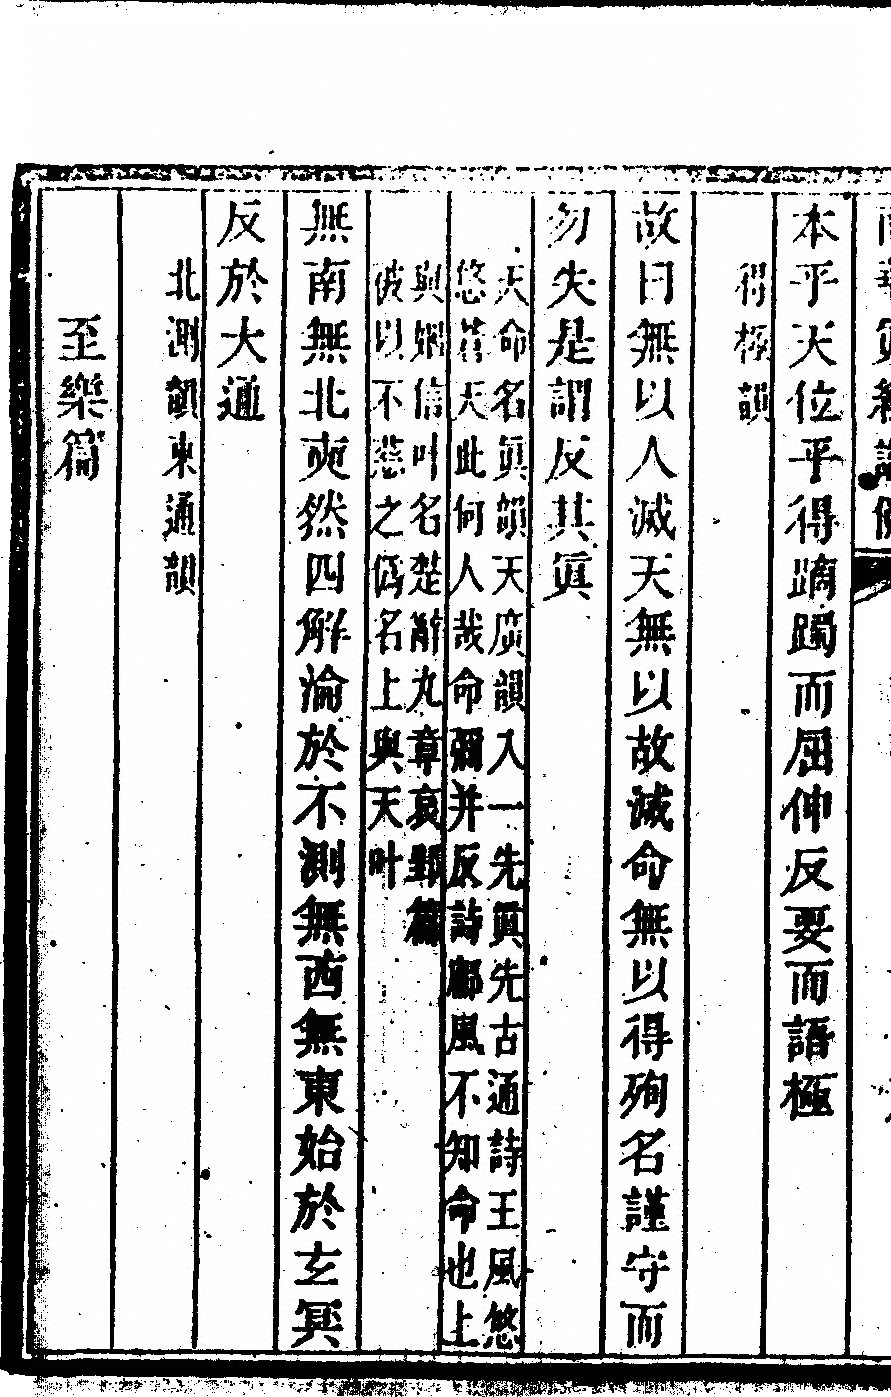 本乎天位乎得蹢躅而屈伸反要而語極
得極韻
故曰無以人滅天無以故滅命無以得殉名謹守而
勿失是謂反其眞
天命名眞韻天廣韻入一先眞先古通詩王風悠
悠蒼天此何人哉命彌并反詩鄘風不知命也上
與姻信叶名楚辭九章哀郢篇
彼以不慈之僞名上與天叶
無南無北奭然四解淪於不測無西無東始於玄冥
反於大通
北測韻東通韻
至樂篇